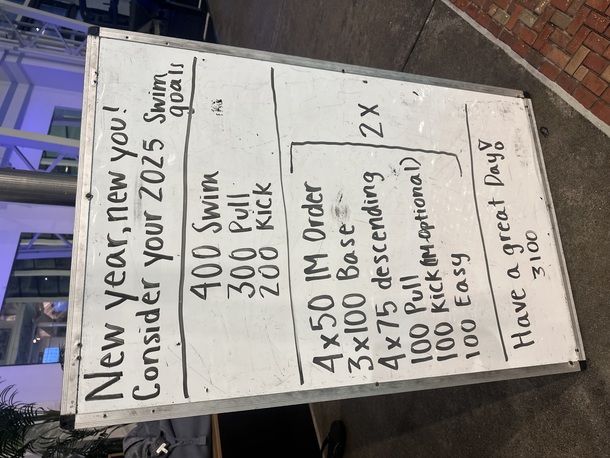 New year, new you!
Consider your 2025 Swim
goals
400 Swim
300 Pull
200 Kick
4x50 IM Order
3x100 Base
4x75 descending
100 Pull
100 Kick (IM Optional)
100 Easy
2X
Have a great Day!
3100